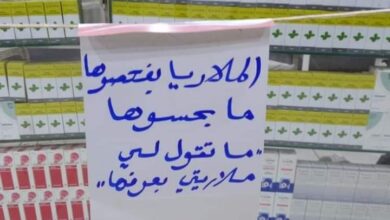 الملاريا بفحصوها
ما بحسوها
"ما تقول لي
ملاريتي بعرفها"